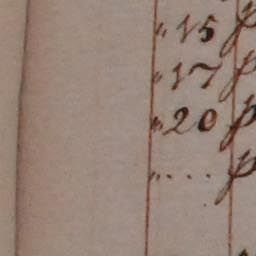 " 15 p
" 17 p
" 20 p
" .... p